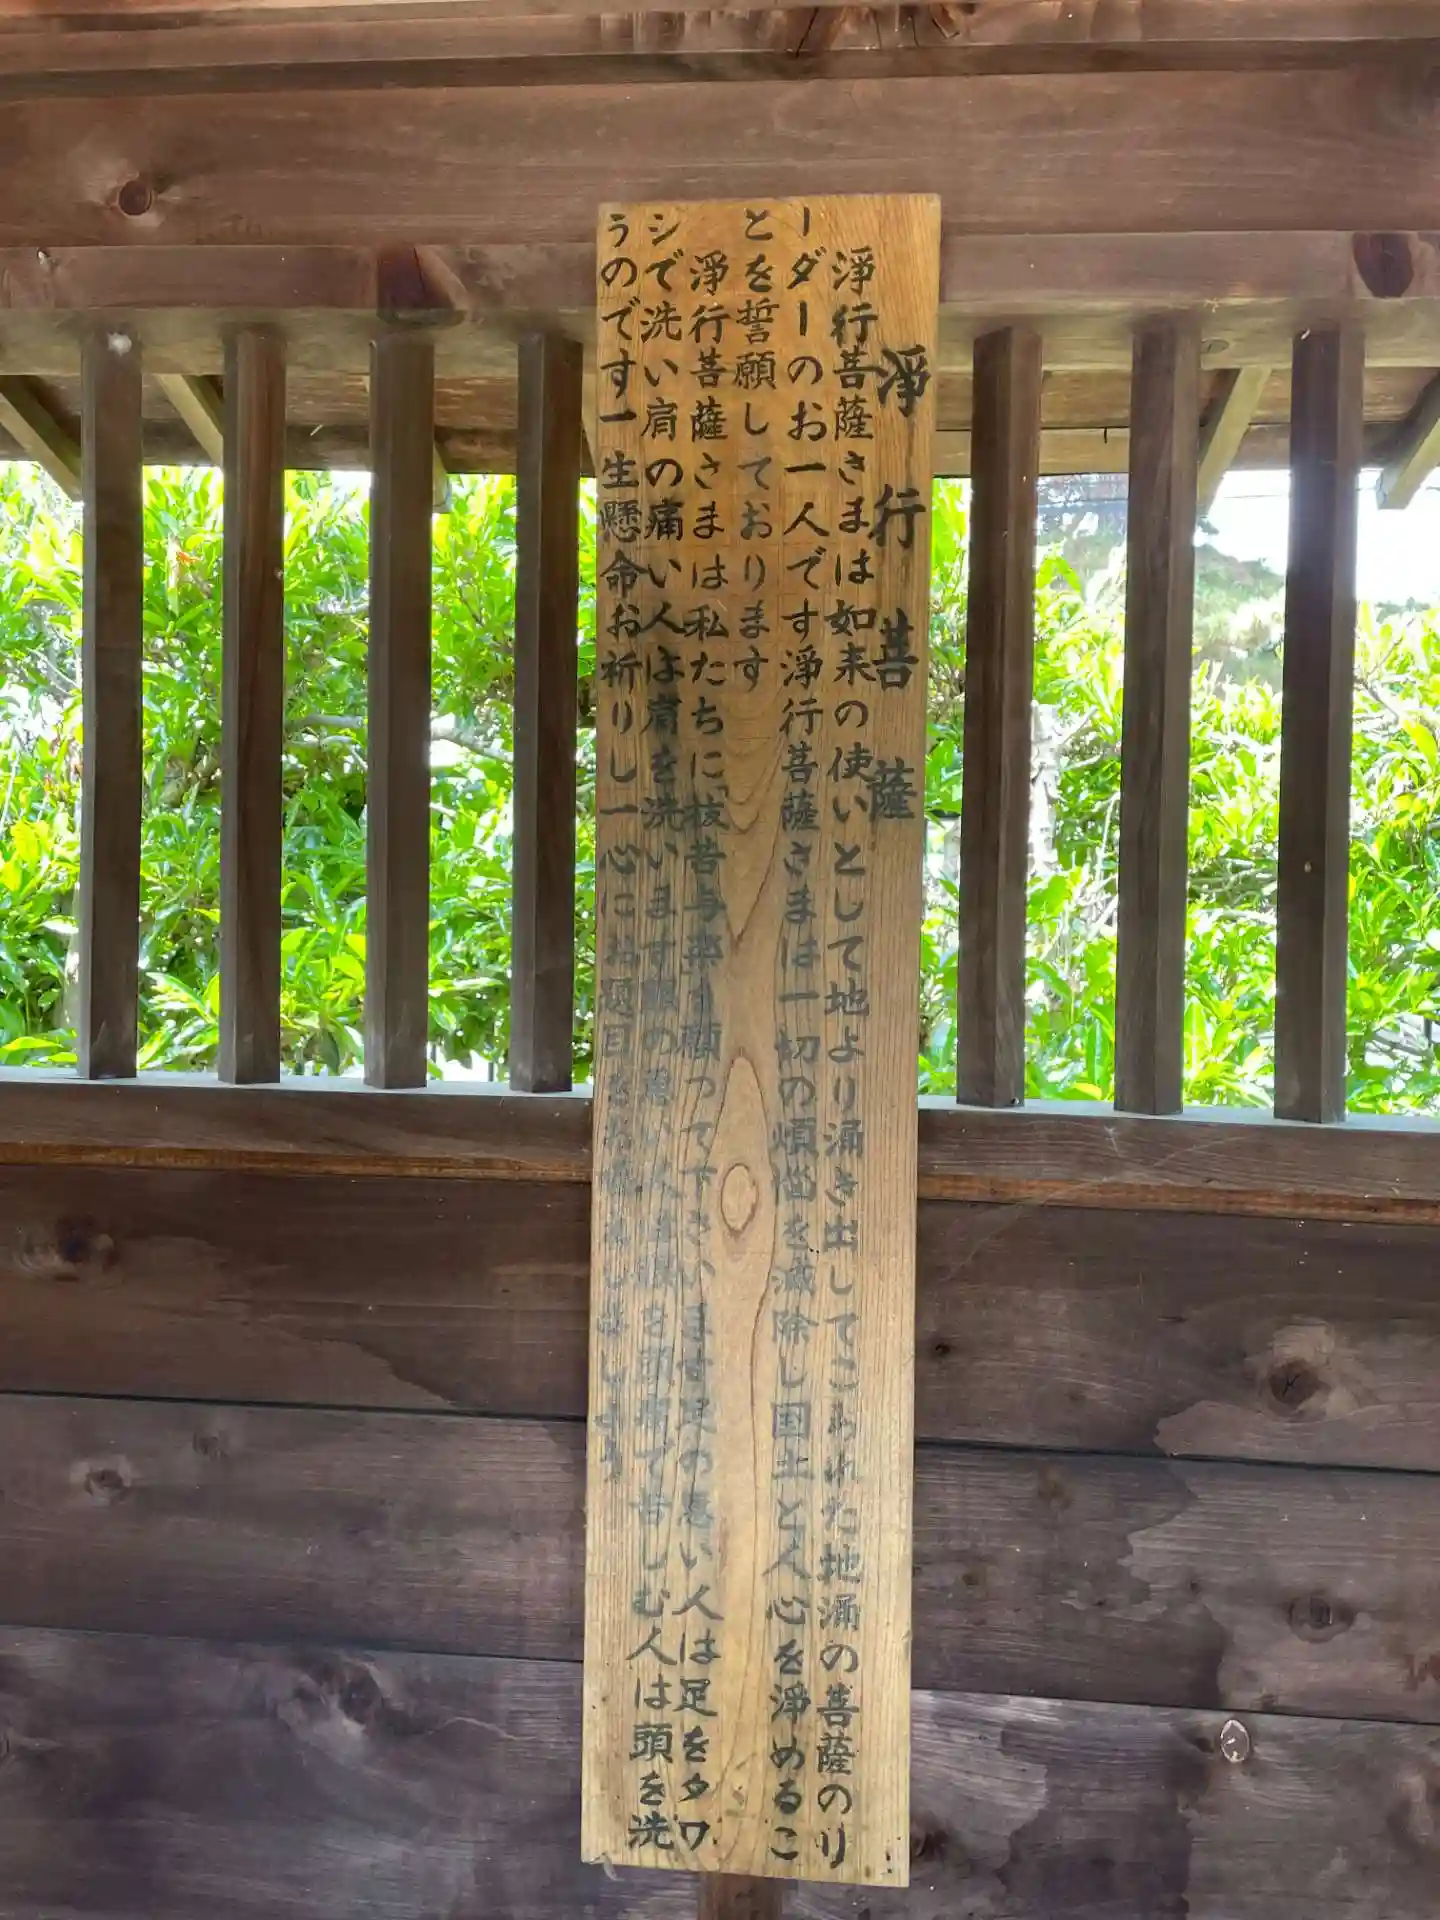 淨行菩薩
淨行菩薩さまは如来の使いとして地より涌き出してこられた地涌の菩薩のリ
ーダーのお一人です淨行菩薩さまは一切の煩悩を滅除し国土と人心を淨めるこ
とを誓願しております
淨行菩薩さまは私たちに「抜苦与楽」を願って下さいます足の悪い人は足をタワ
シで洗い肩の痛い人は肩を洗います眼の悪い人は眼を頭痛で苦しむ人は頭を洗
うのです一生懸命お祈りし一心にお題目をお唱えしましょう